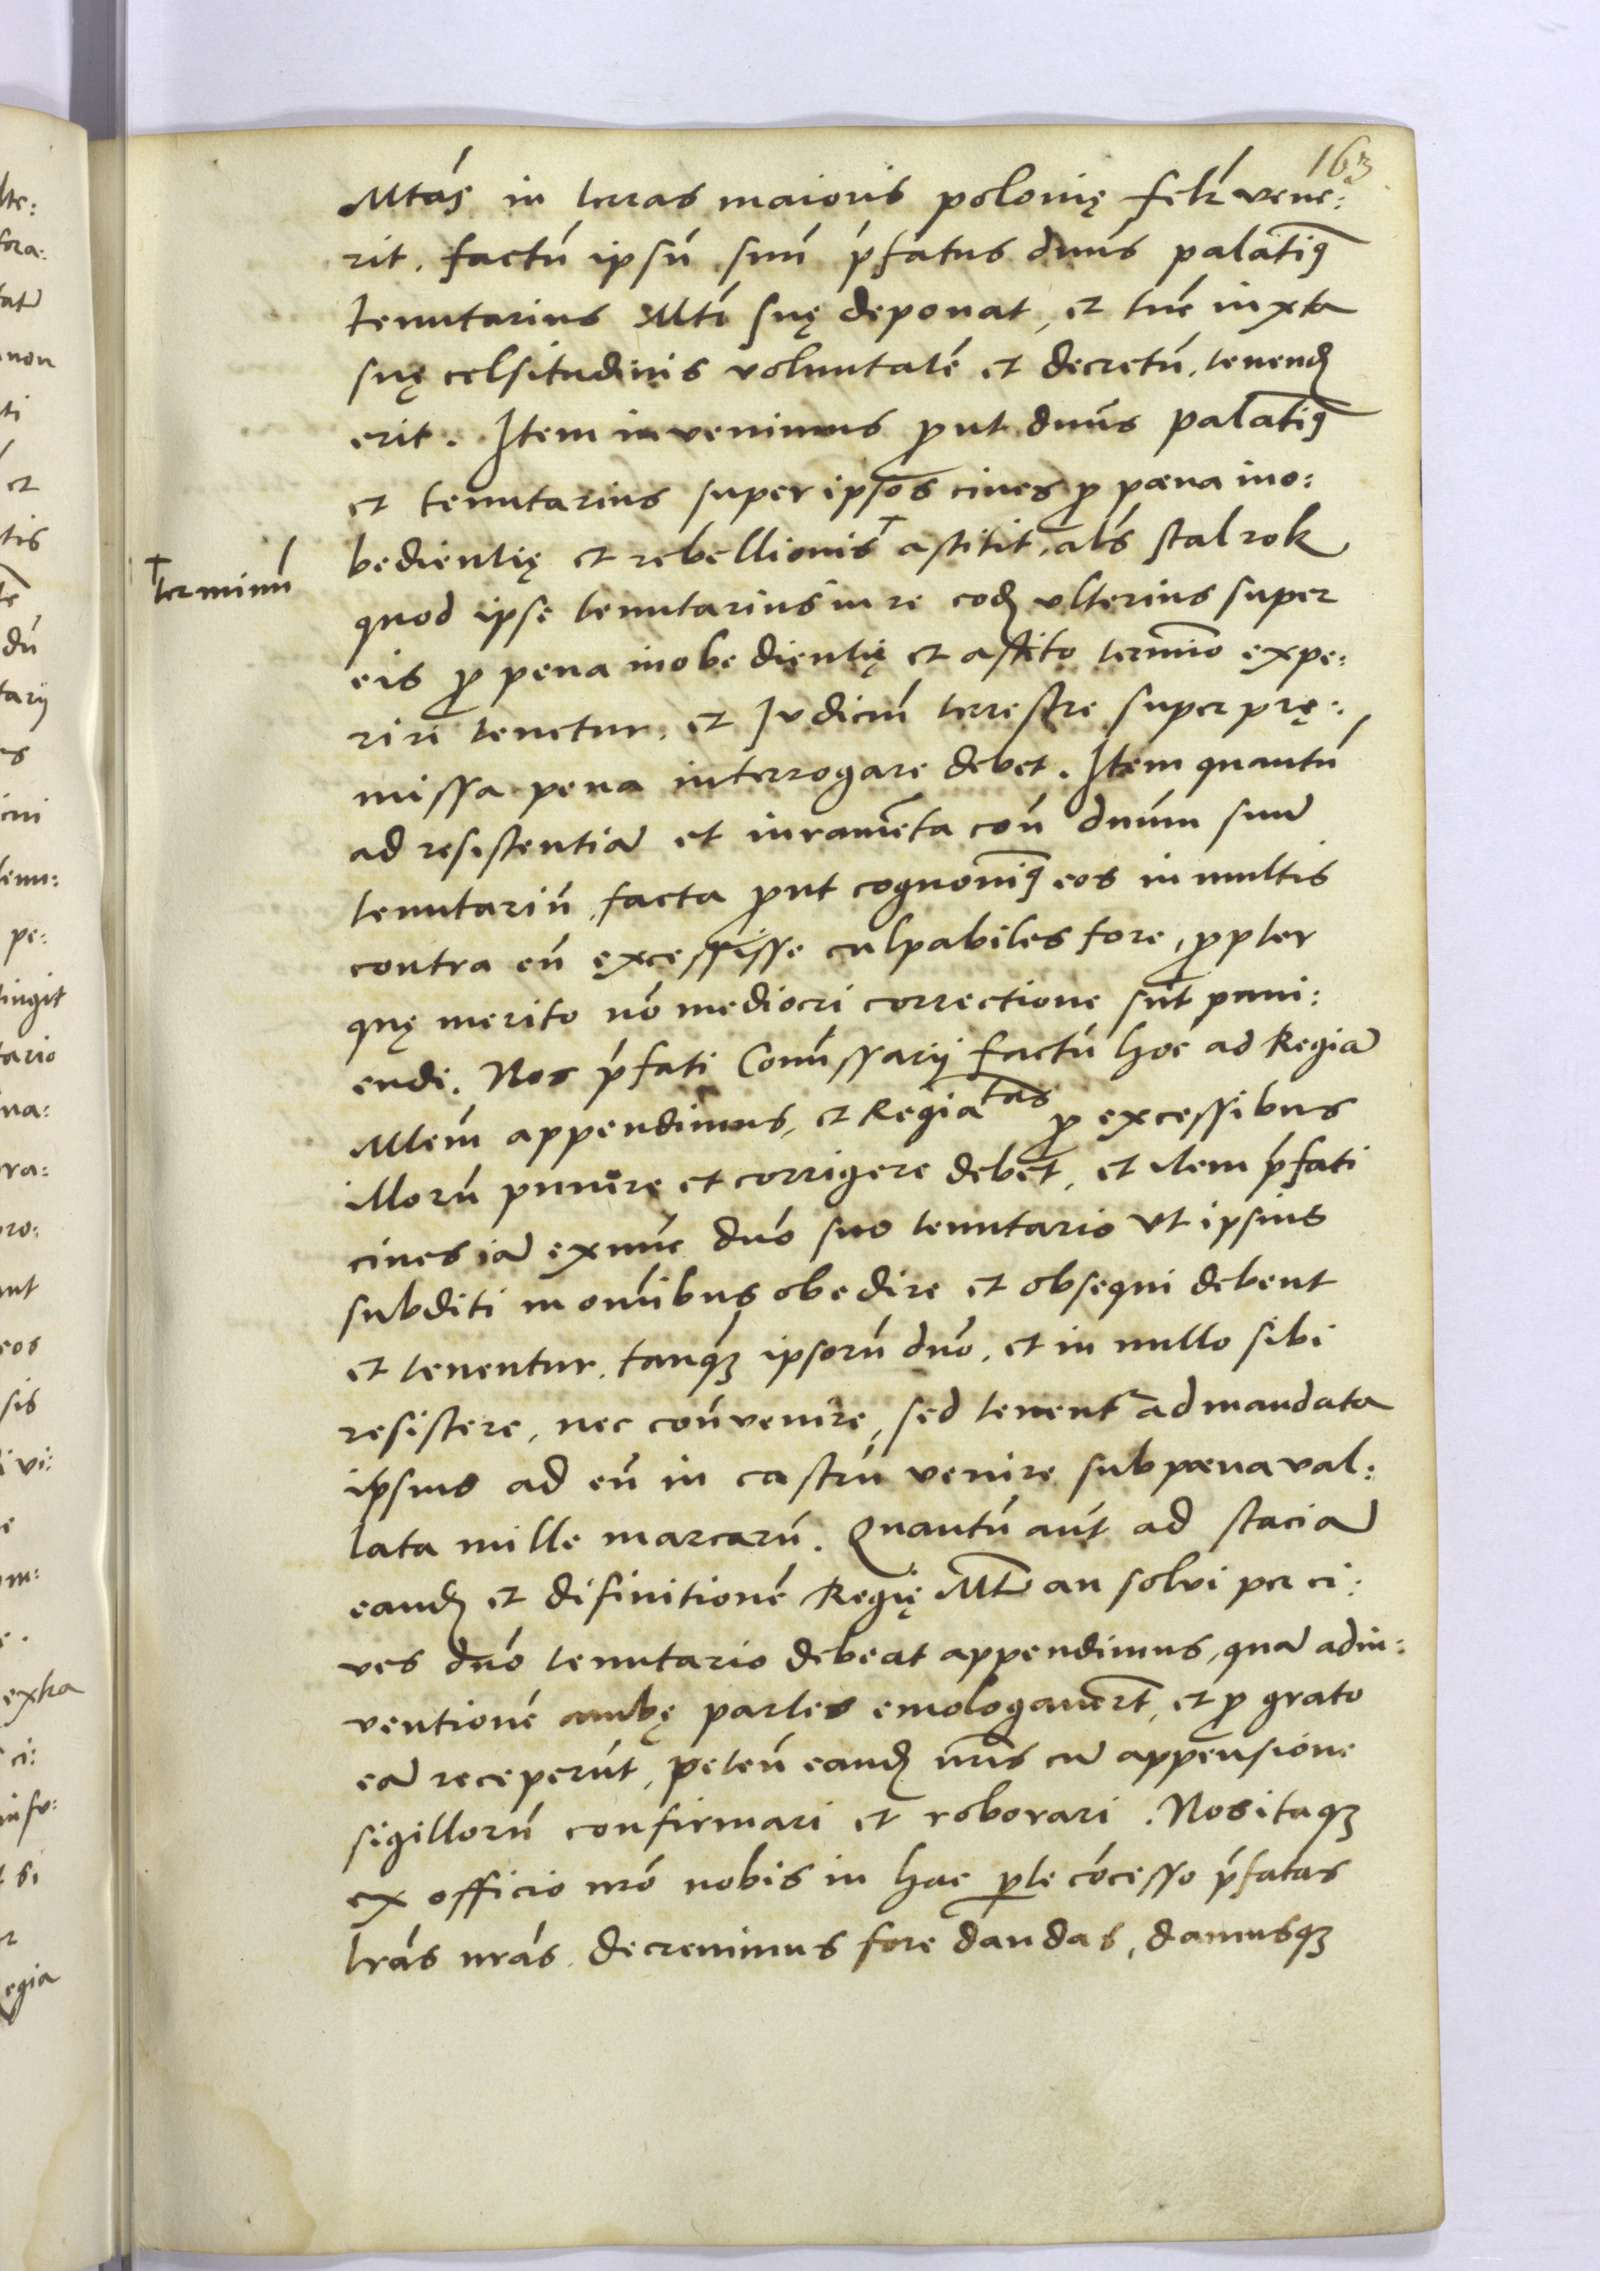 163
Mtas in terras maioris polonię felr vene:
rit, factū ipsū suū pfatus dnus palatiꝯ
tenutarius Mti suę deponat, et tūc iuxta
suę celsitudinis voluntatē et decretū, tenend
erit. Item invenimus ꝓut dnus palatiꝯ
et tenutarius super ipsos ciues ꝓ pœna ino:
bedientię et rebellionis† astitit, als stal rok
†terminū
quod ipse tenutarius iure eod vlterius super
eis ꝓ pena inobedientię et astito termino expe:
riri tenetur, et Iudiciū terrestre super prę:
missa pena interrogare debet. Item quantū
ad resistentiā et iuramēta con dnum suū
tenutariū facta ꝓut cognouimꝯ eos in multis
contra eū excessisse culpabiles fore, ꝓpter
quę merito nō mediocri correctione sūt pani:
endi. Nos pfati Comissarij factū hoc ad Regiā
Mtem appendimus, et Regia tas ꝓ excessibus
illorū punire et corrigere debet, et item pfati
ciues iā exnūc dnō suo tenutario vt ipsius
subditi in omibus obedire et obsequi debent
et tenentur, tanqꝫ ipsorū dnō, et in nullo sibi
resistere, nec conuenire, sed tenent ad mandata
ipsius ad eū in castrū venire sub pœna val:
lata mille marcarū. Quantū aūt ad staciā
eand et difinitionē Regię Mt an solvi per ci:
ves dnō tenutario debeat appendimus, quā adin:
ventionē ambę partes emologauert, et ꝓ grato
eā receperūt, peten eand nris cū appensione
sigillorū confirmari et roborari. Nos itaqꝫ
ex officio nrō nobis in hac ꝑte cōcesso pfatas
lrās nrās decreuimus fore dandas, damusqꝫ